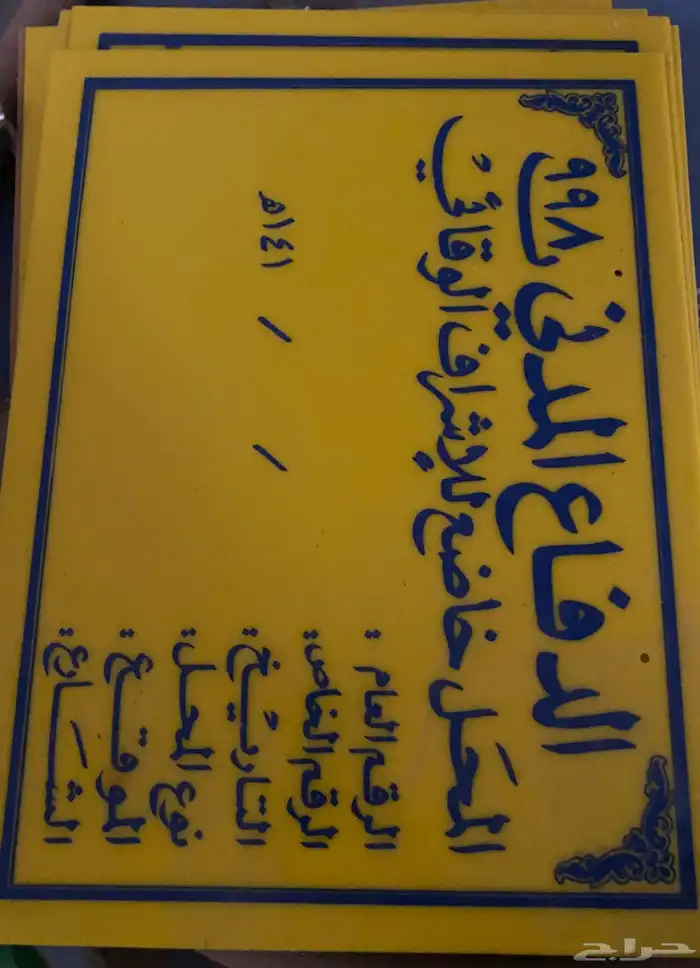 الدفاع المدني ٩٩٨
المحل خاضع للإشراف الوقائي
الرقم العام :
الرقم الخاص :
التاريخ : / / ١٤١هـ
نوع المحل :
الموقع :
الشارع :
حراج